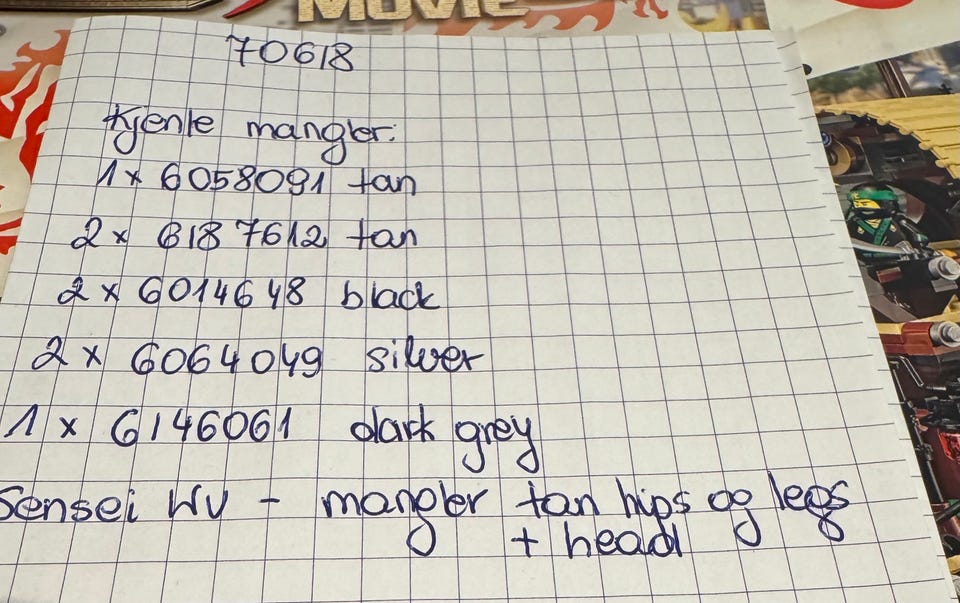 MOVIE
70618
Kjente mangler:
1 x 6058091 tan
2 x 6187612 tan
2 x 6014648 black
2 x 6064049 silver
1 x 6146061 dark grey
Sensei Wu - mangler tan hips og legs
+ head